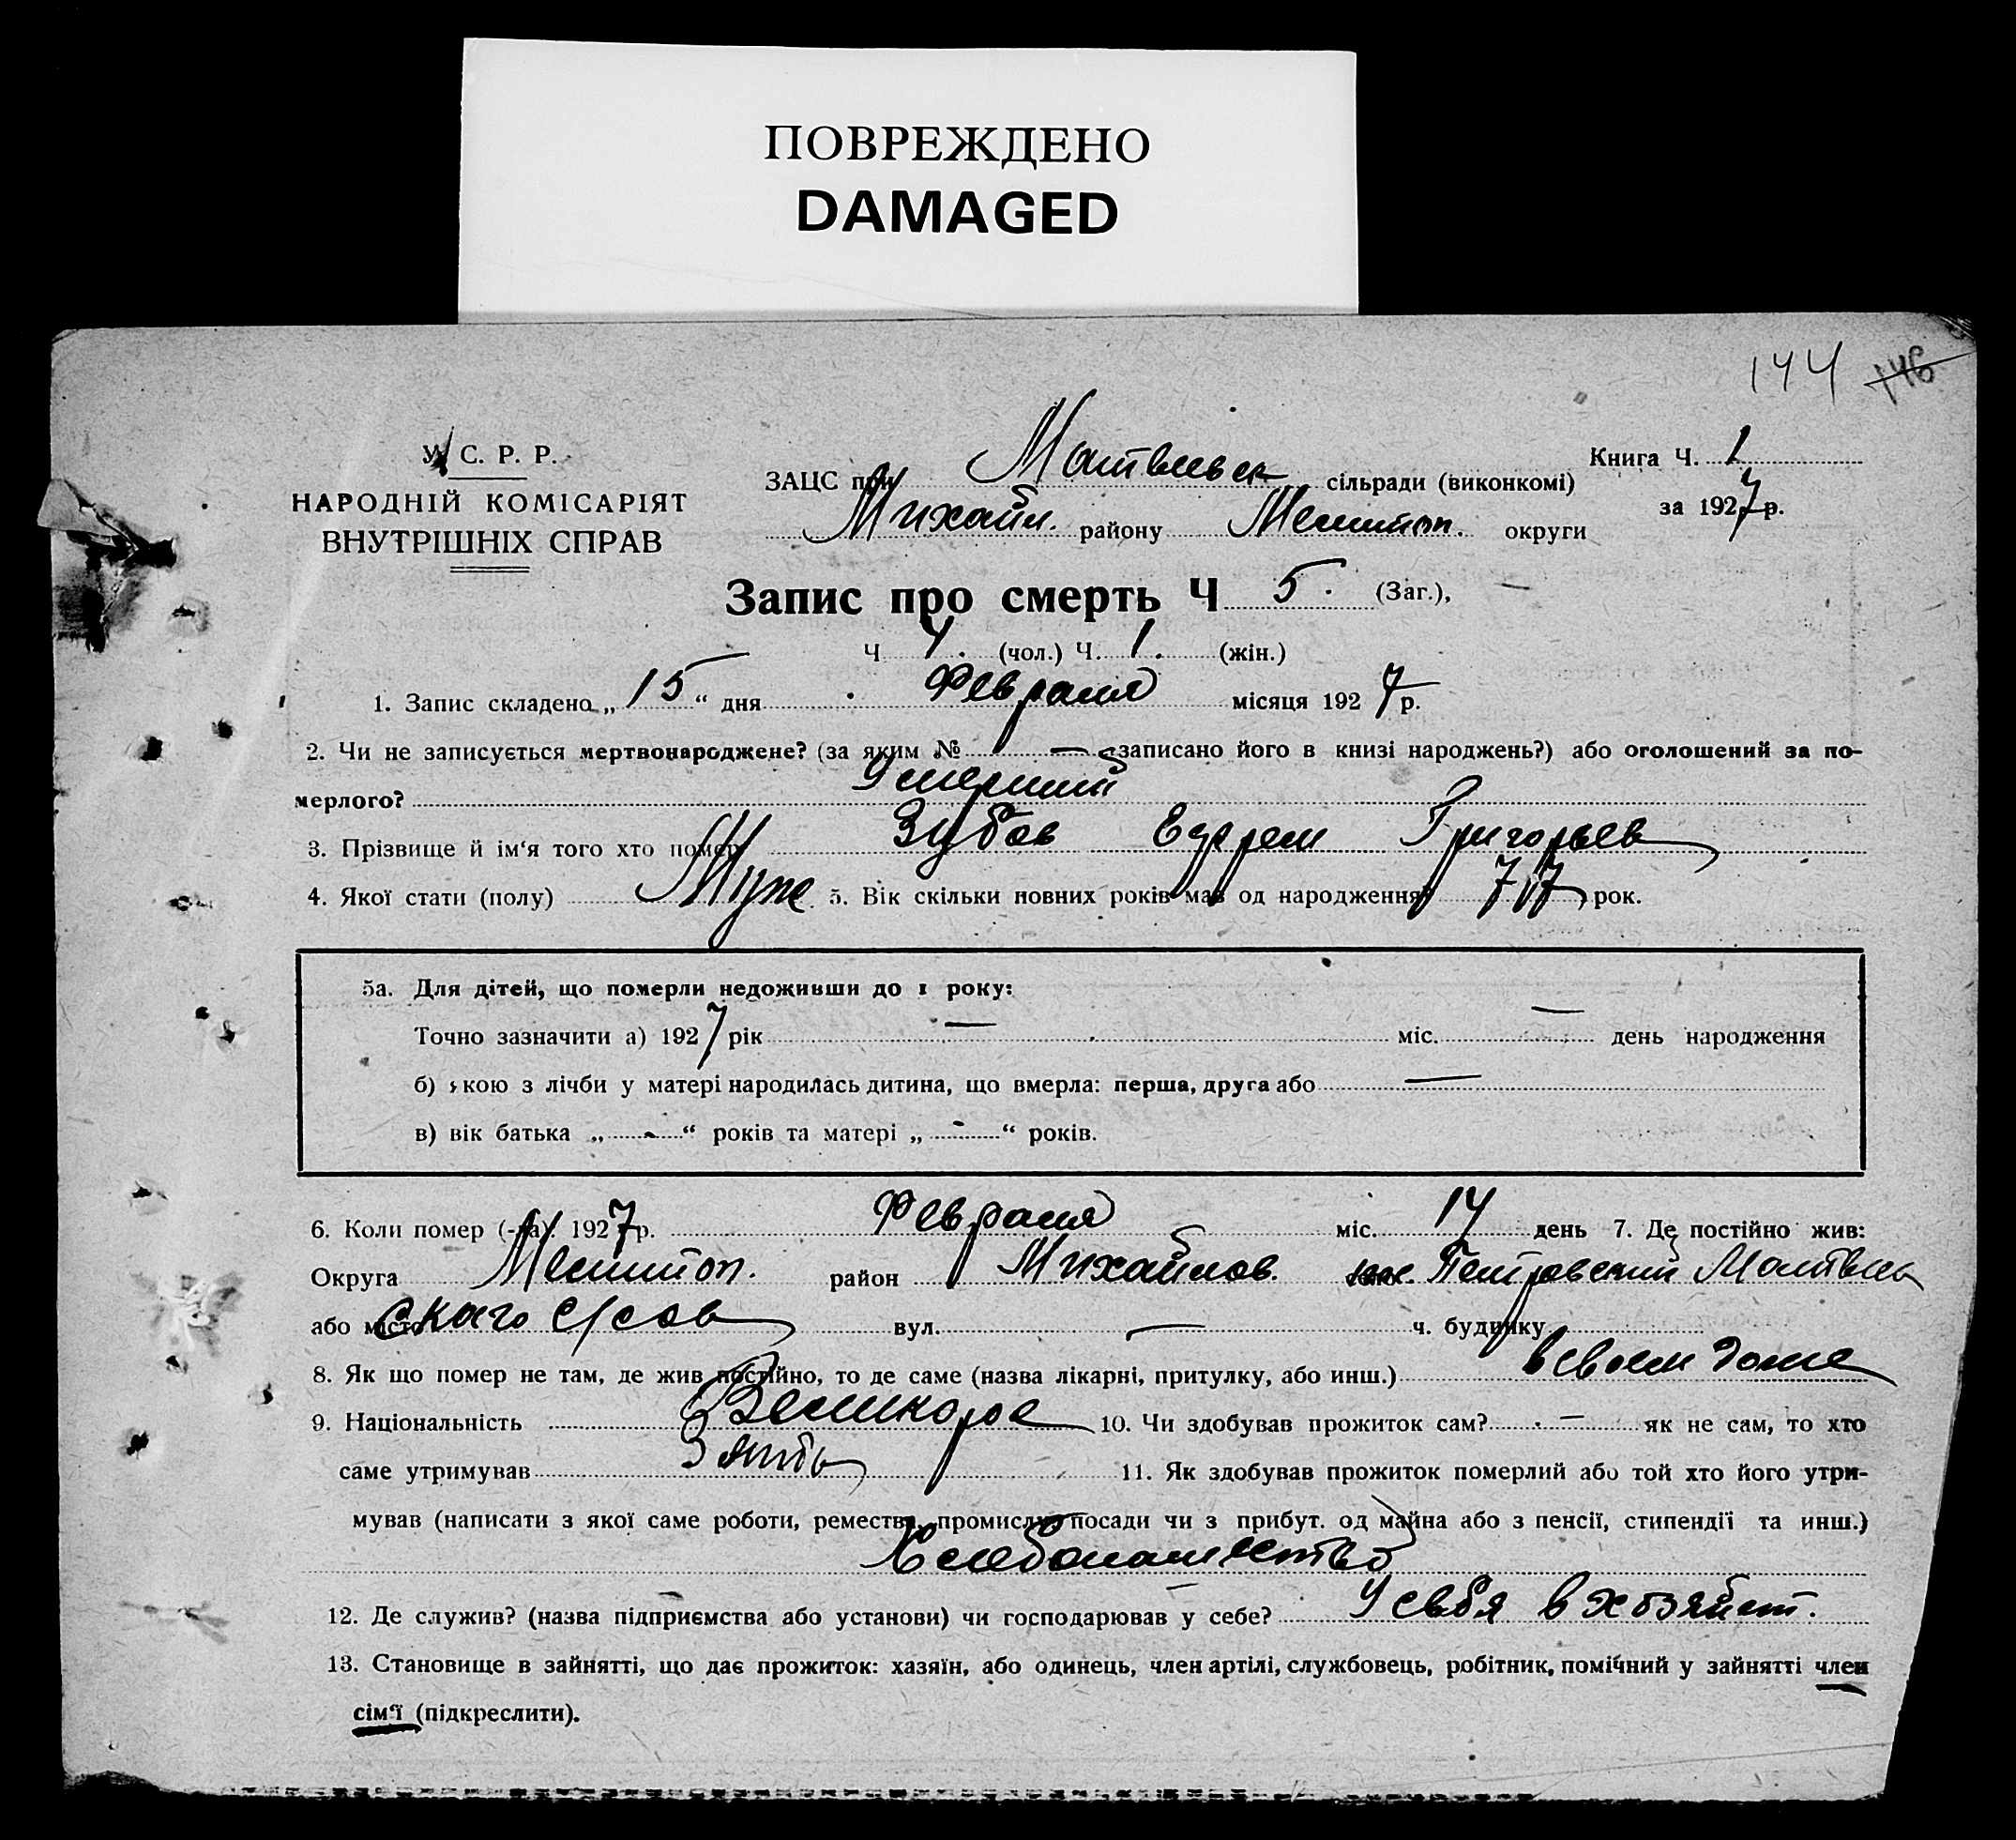 ПОВРЕЖДЕНО
DAMAGED
144 146
У. С. Р. Р.
НАРОДНІЙ КОМІСАРІЯТ
ВНУТРІШНІХ СПРАВ
ЗАЦС при Матвеевск сільради (виконкомі)
Михайл. району Мелитоп. округи
Книга Ч. 1
за 1927 р.
Запис про смерть Ч 5. (Заг.),
Ч 4. (чол.) Ч. 1. (жін.)
1. Запис складено „ 15 “ дня Февраля місяця 1927 р.
2. Чи не записується мертвонароджене? (за яким № — записано його в книзі народжень?) або оголошений за по-
мерлого? Умерший
3. Прізвище й ім‘я того хто помер Зубов Ефрем Григорьев
4. Якої стати (полу) Муж 5. Вік скільки повних років мав од народження? 77 рок.
5а. Для дітей, що померли недоживши до 1 року:
Точно зазначити а) 1927 рік — міс. — день народження
б) якою з лічби у матері народилась дитина, що вмерла: перша, друга або —
в) вік батька „ - “ років та матері „ - “ років.
6. Коли помер (-ла). 1927 р. Февраля міс. 14 день 7. Де постійно жив:
Округа Мелитоп. район Михайлов. Петровский Матвеев
або місто ского с/сов вул. — ч. будинку
8. Як що помер не там, де жив постійно, то де саме (назва лікарні, притулку, або инш.) в своем доме
9. Національність Великорос 10. Чи здобував прожиток сам? — як не сам, то хто
саме утримував Зять 11. Як здобував прожиток померлий або той хто його утри-
мував (написати з якої саме роботи, ремества, промислу, посади чи з прибут. од майна або з пенсії, стипендії та инш.)
Хлебопашество
12. Де служив? (назва підприємства або установи) чи господарював у себе? У себя в хозяйст.
13. Становище в зайнятті, що дає прожиток: хазяїн, або одинець, член артілі, службовець, робітник, помічний у зайнятті член
сім‘ї (підкреслити).